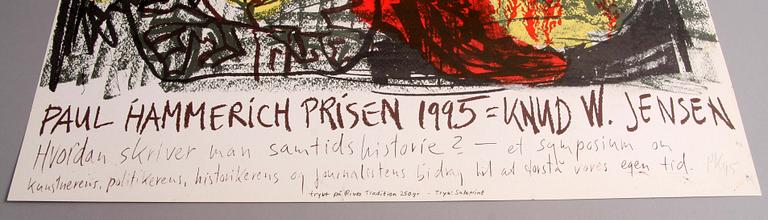 PAUL HAMMERICH PRISEN 1995 = KNUD W. JENSEN
Hvordan skriver man samtidshistorie? — et symposium om
kunstnerens, politikerens, historikerens og journalistens bidrag til at forstå vores egen tid. PK 95
trykt på Rives Tradition 250gr - Tryk: